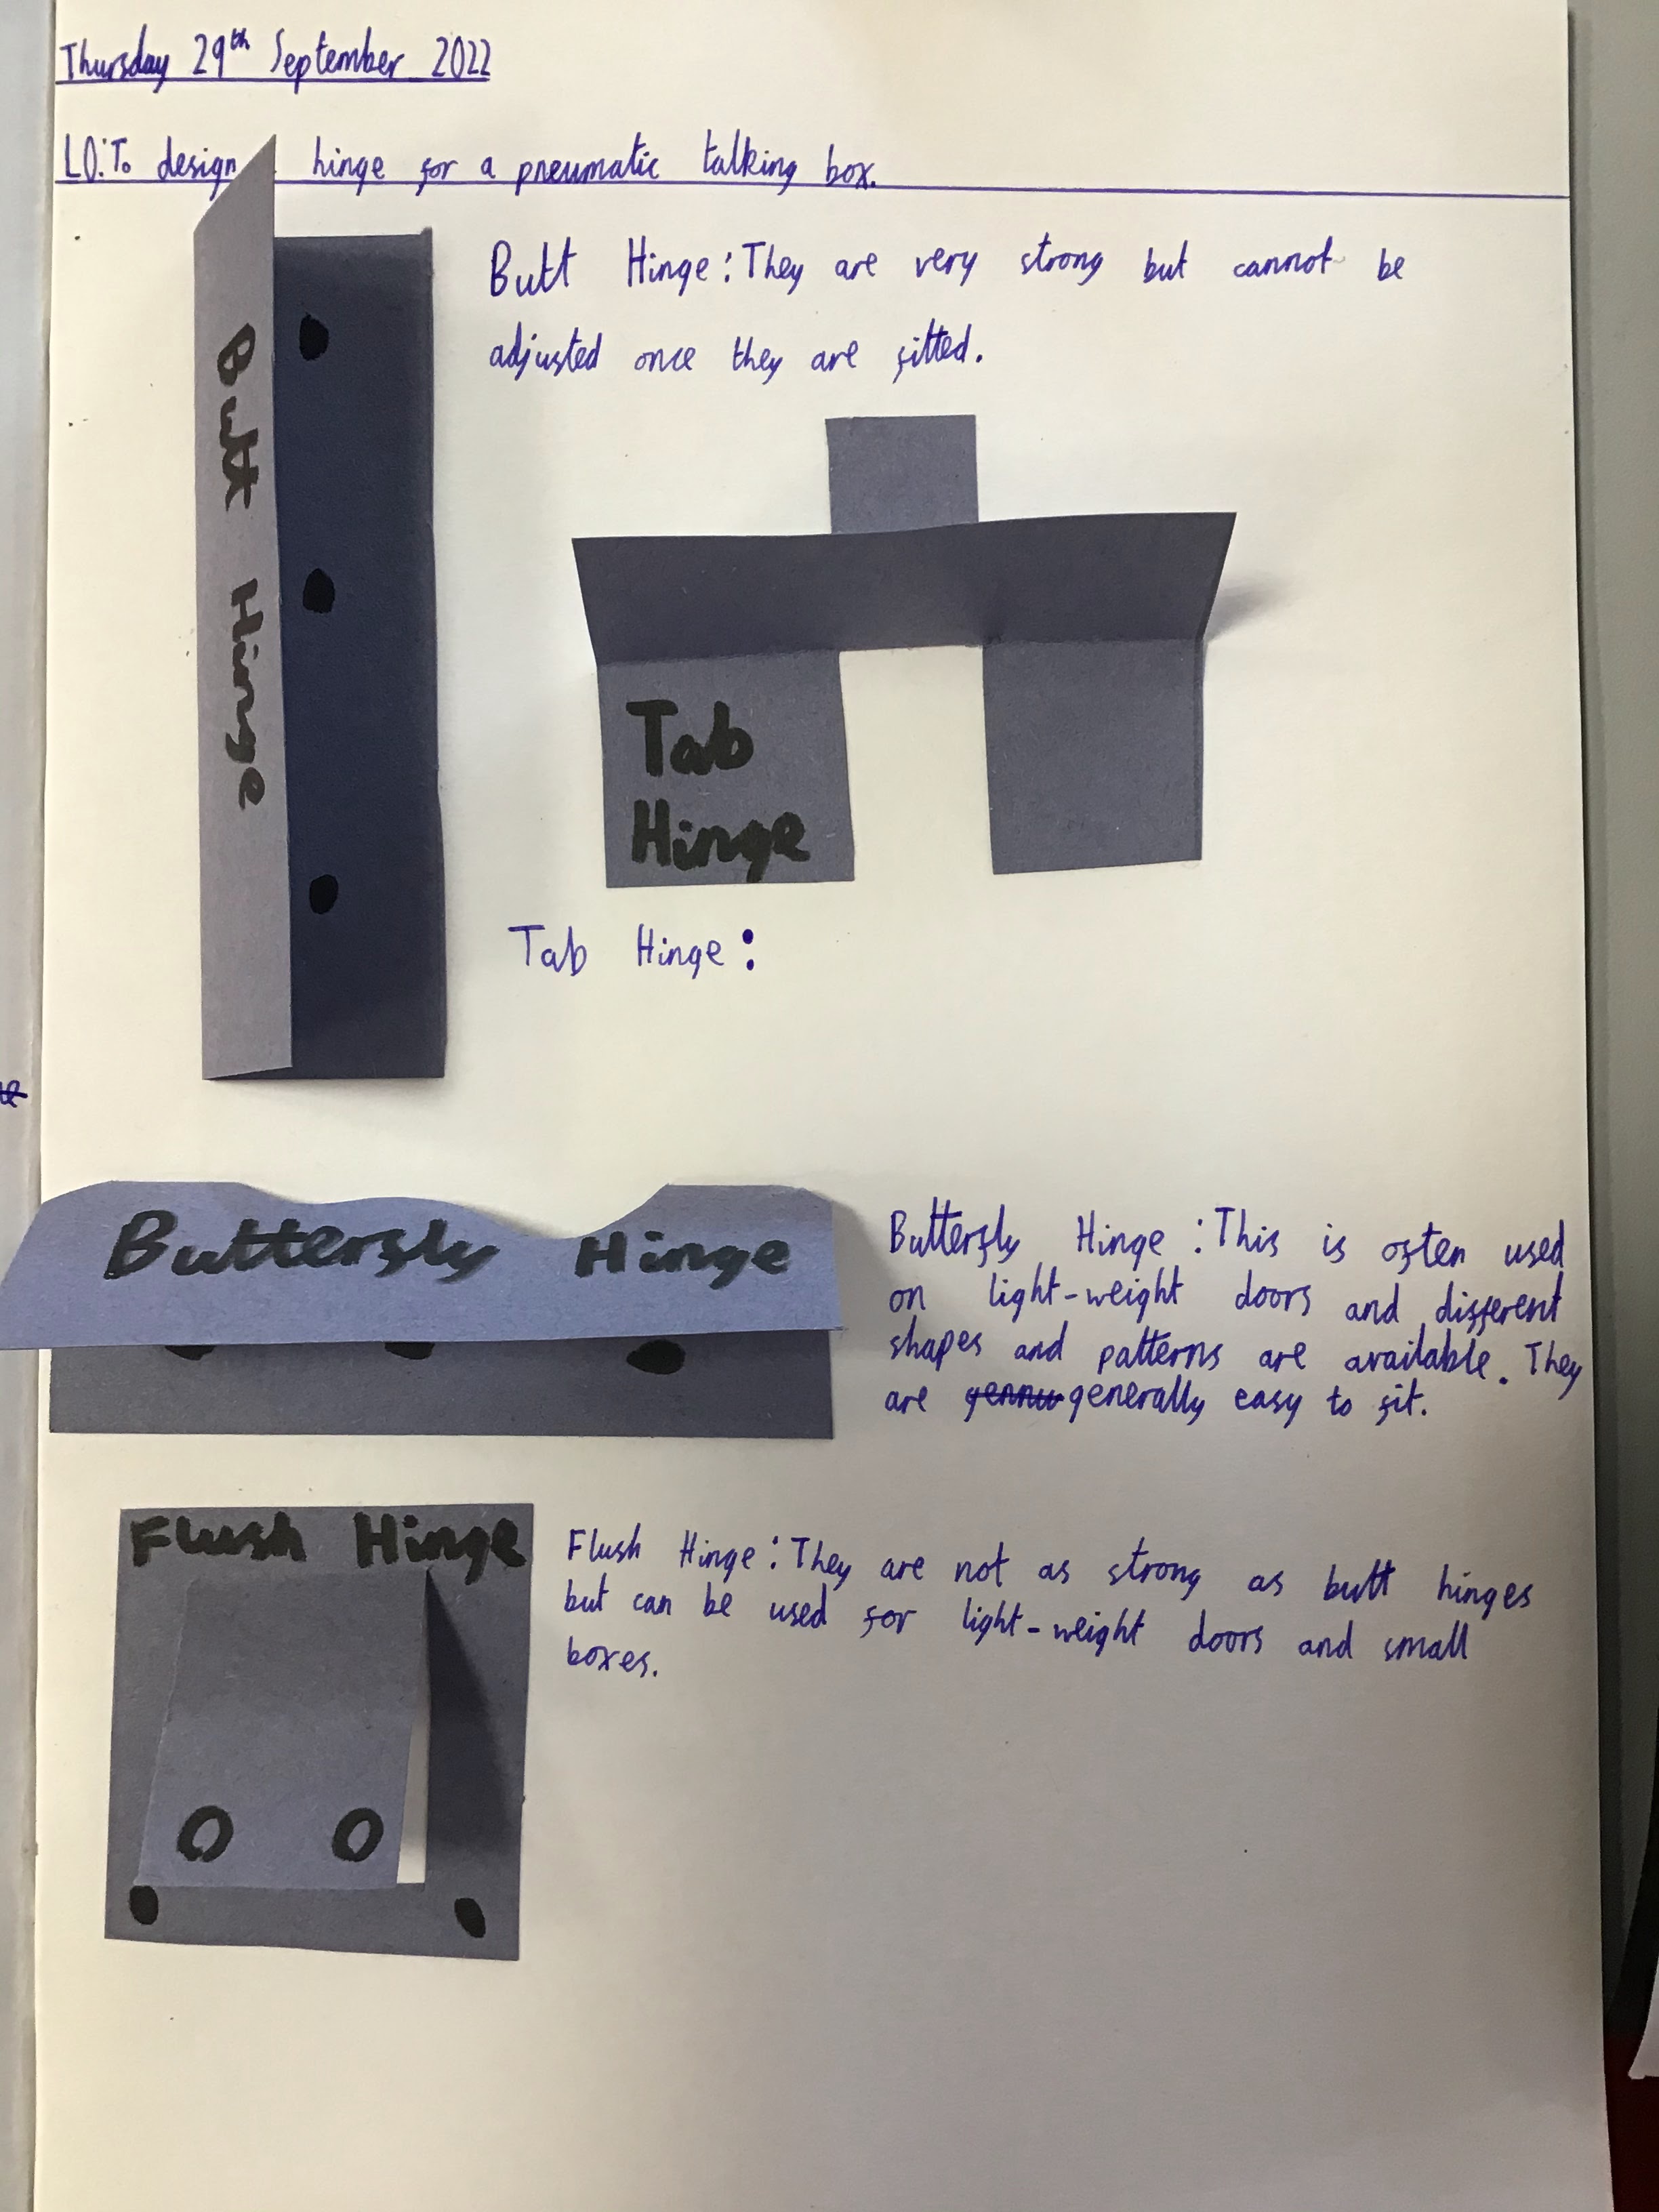 Thursday 29th September 2022
LO: To design hinge for a pneumatic talking box.
Butt Hinge
Butt Hinge: They are very strong but cannot be
adjusted once they are fitted.
Tab
Hinge
Tab Hinge:
Butterfly Hinge
Butterfly Hinge: This is often used
on light-weight doors and different
shapes and patterns are available. They
are generally easy to fit.
Flush Hinge
Flush Hinge: They are not as strong as butt hinges
but can be used for light-weight doors and small
boxes.